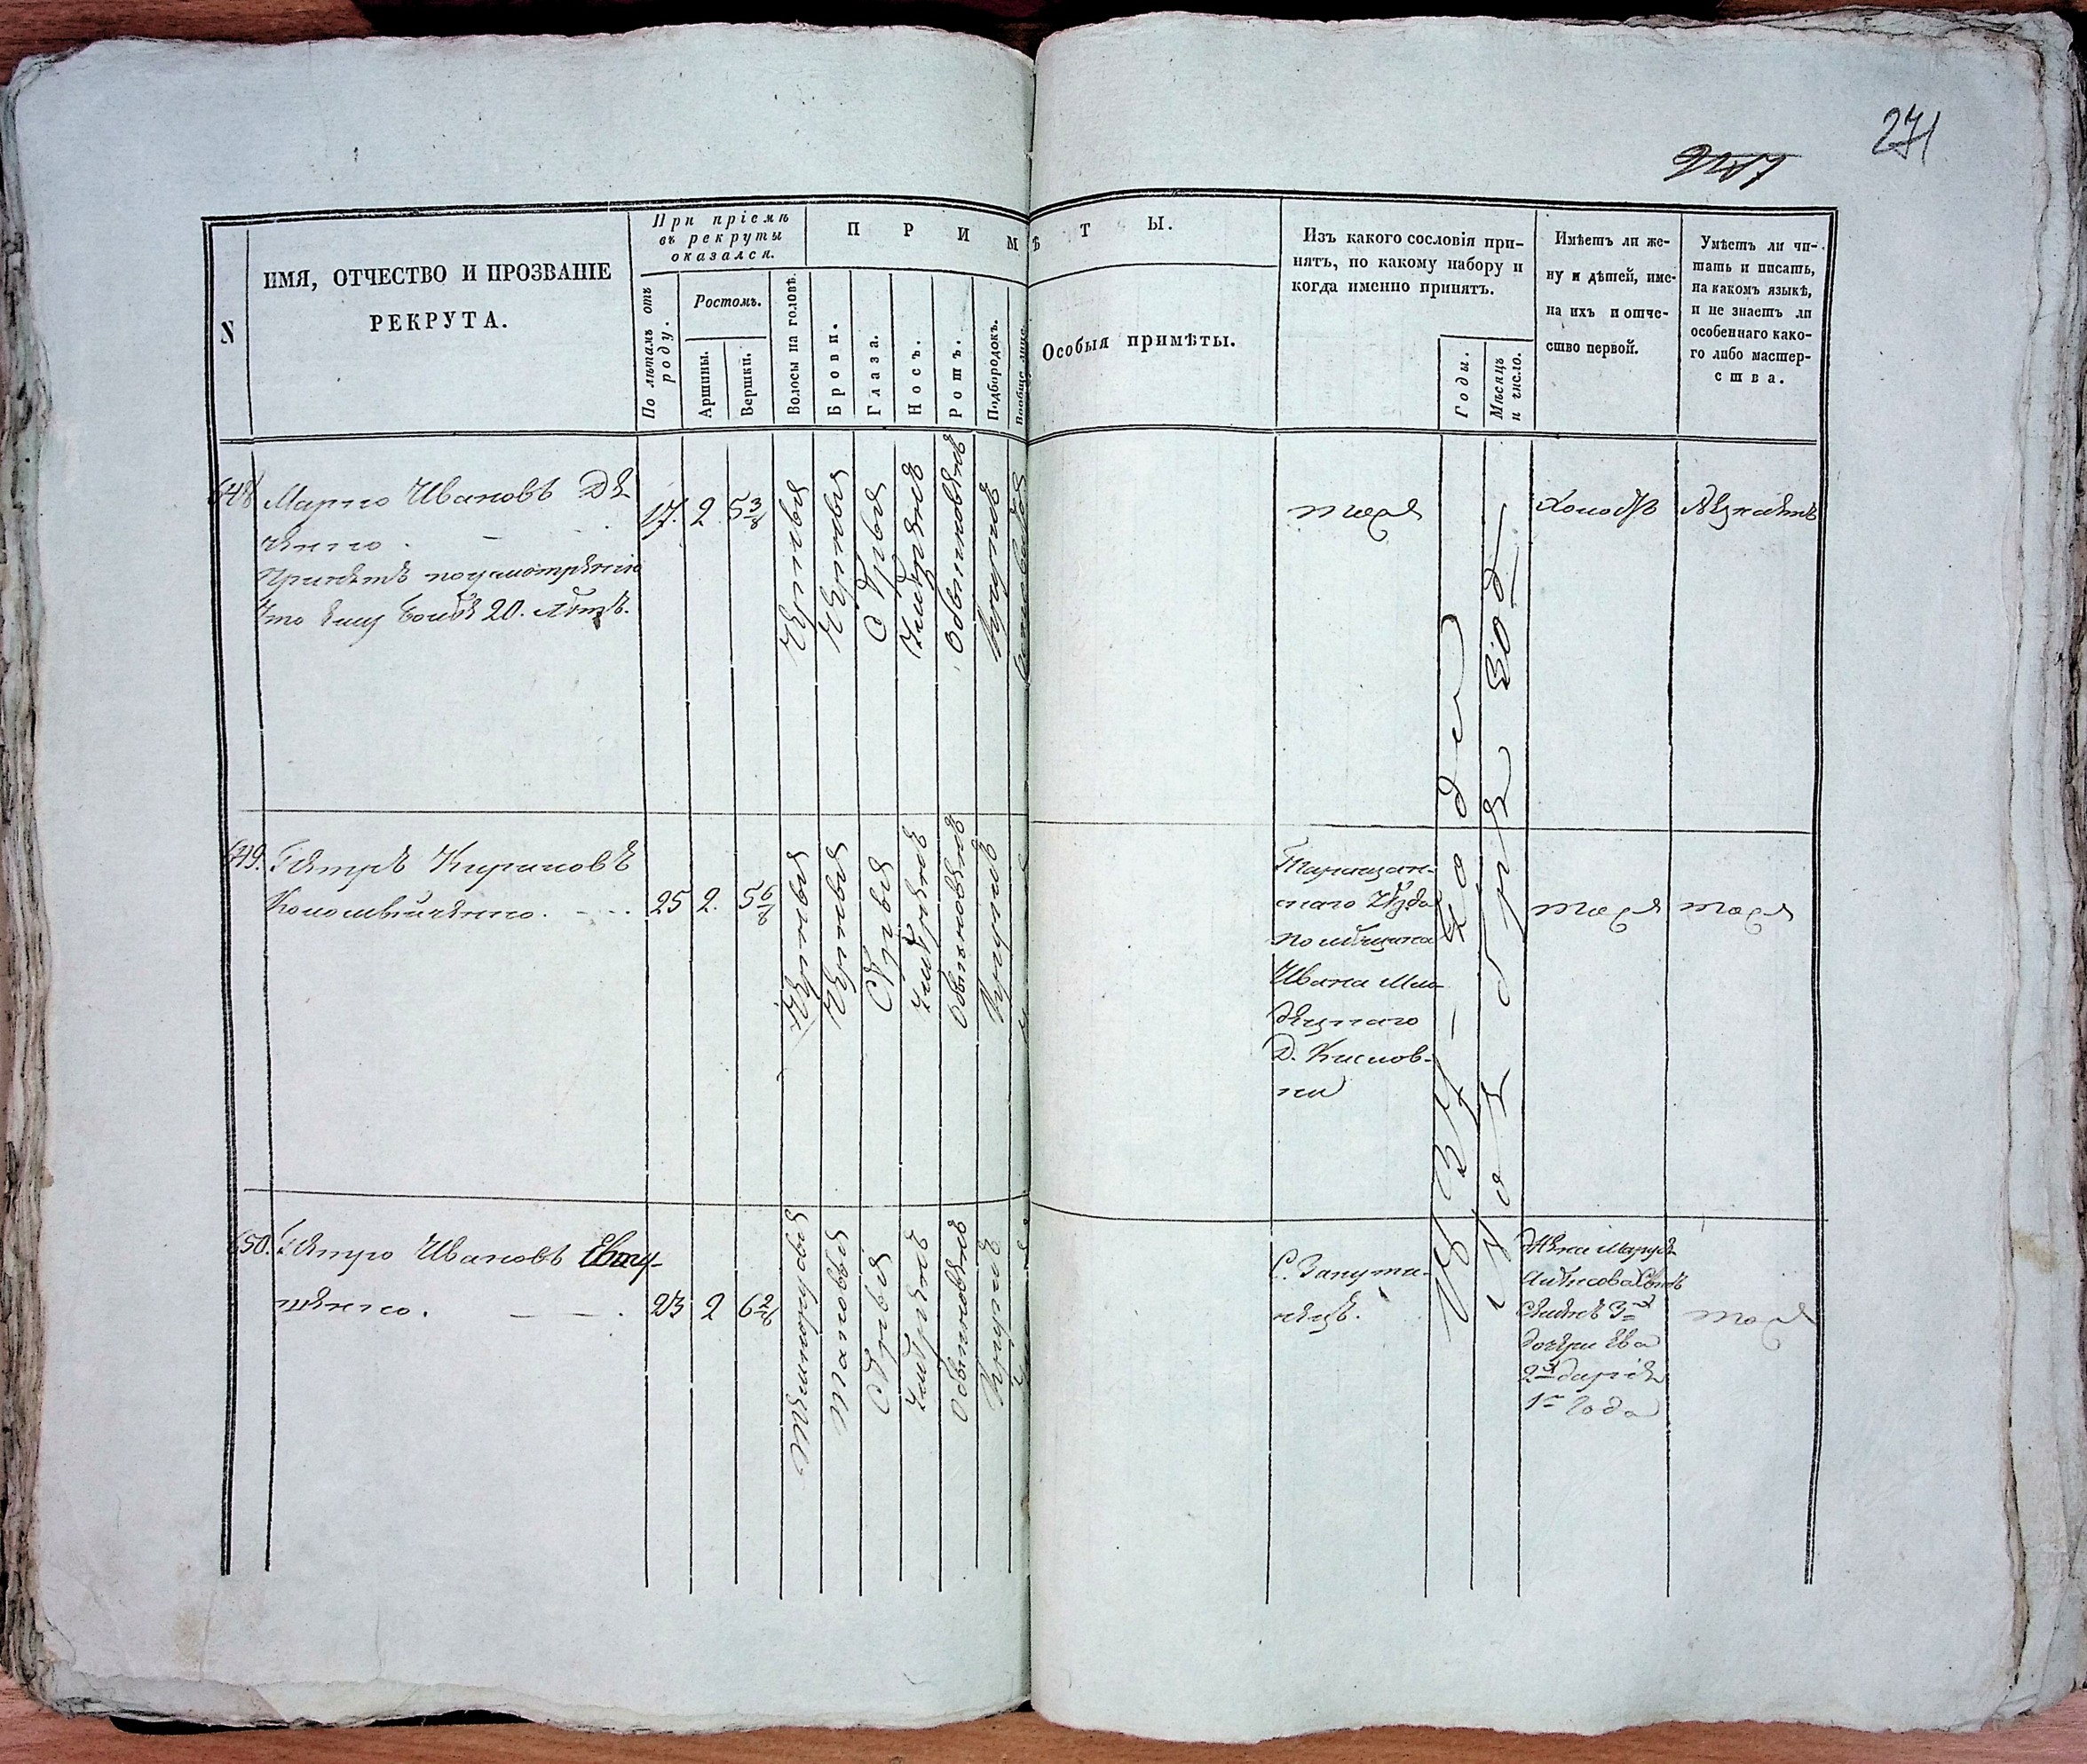 271
N
ИМЯ, ОТЧЕСТВО И ПРОЗВАНІЕ
РЕКРУТА.
При пріемѣ
въ рекруты
оказался.
По лѣтамъ отъ
роду.
Ростомъ.
Аршины.
Вершки.
ПРИМѢТЫ.
Волосы на головѣ.
Брови.
Глаза.
Носъ.
Ротъ.
Подбородокъ.
Вообще лице.
Особыя примѣты.
Изъ какого сословія при-
нятъ, по какому набору и
когда именно принятъ.
Годы.
Мѣсяцъ
и число.
Имѣетъ ли же-
ну и дѣтей, име-
на ихъ и отче-
ство первой.
Умѣетъ ли чи-
тать и писать,
на какомъ языкѣ,
и не знаетъ ли
особеннаго како-
го либо мастер-
ства.
648
Марко Ивановъ Де
ченко.
Принятъ по усмотренію
что ему более 20. лѣтъ.
17. 2 5 3/8
Черныя
Черныя
Сѣрыя
Умѣренъ
Обыкновенъ
Круглъ
тоже
Холостъ
Незнаетъ
649.
Петръ Кириловъ
Коломѣйченко.
25 2. 5 6/8
Черныя
Черныя
Сѣрыя
Умѣренъ
Обыкновенъ
Круглъ
Таращан-
скаго Уѣзда
помѣщика
Ивана
Д.
тоже
тоже
650.
Петро Ивановъ Евту-
шенко.
23 2 6 2/8
Темнорусыя
Таковыя
Сѣрыя
Умѣренъ
Обыкновенъ
Круглъ
С.
183 года
Жена
дочери Ева
2 Дарія
1 года
тоже